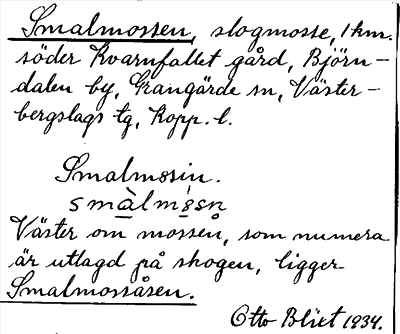 Smalmossen, slogmosse, 1 km.
söder Kvarnfallet gård, Björn-
dalen by, Grangärde sn, Väster-
bergslags tg, Kopp. l.
Smalmosin.
smàlms̥n
Väster om mossen, som numera
är utlagd på skogen, ligger
Smalmossåsen.
Otto Blixt 1934.